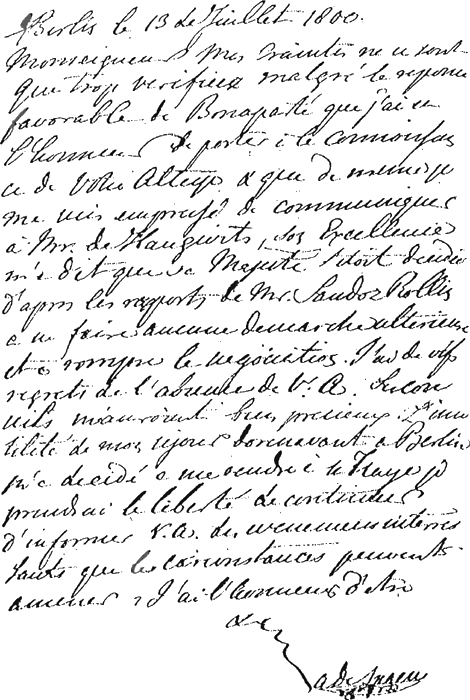 Berlin le 13 de Juillet 1800.
Monseigneur! Mes craintes ne se sont
que trop verifiez malgré la reponse
favorable de Bonaparte que j'ai eu
l'honneur de porter à la connoissan
ce de Votre Altesse & que de meme je
me suis empressé de communiquer
à Mr. de Haugwits, son Excellence
m'a dit que sa Majesté s'etoit decidée
d'apres les rapports de Mr. Sandoz Rollin
a ne faire aucune demarche ulterieure
et a rompre la negociation. J'ai de vifs
regrets de l'absence de V. A. Ses con
seils m'auroient bien precieux. L'inu
tilité de mon sejour dorenavant a Berlin
m'a decidé a me rendre à la Haye je
prendrai la liberté de continuer
d'informer V. A. des evenemens interes
sants que les circonstances peuvent
amener. J'ai l'honneur d'etre